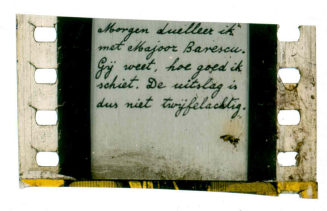 Morgen duelleer ik
met Majoor Barescu.
Gij weet, hoe goed ik
schiet. De uitslag is
dus niet twijfelachtig.